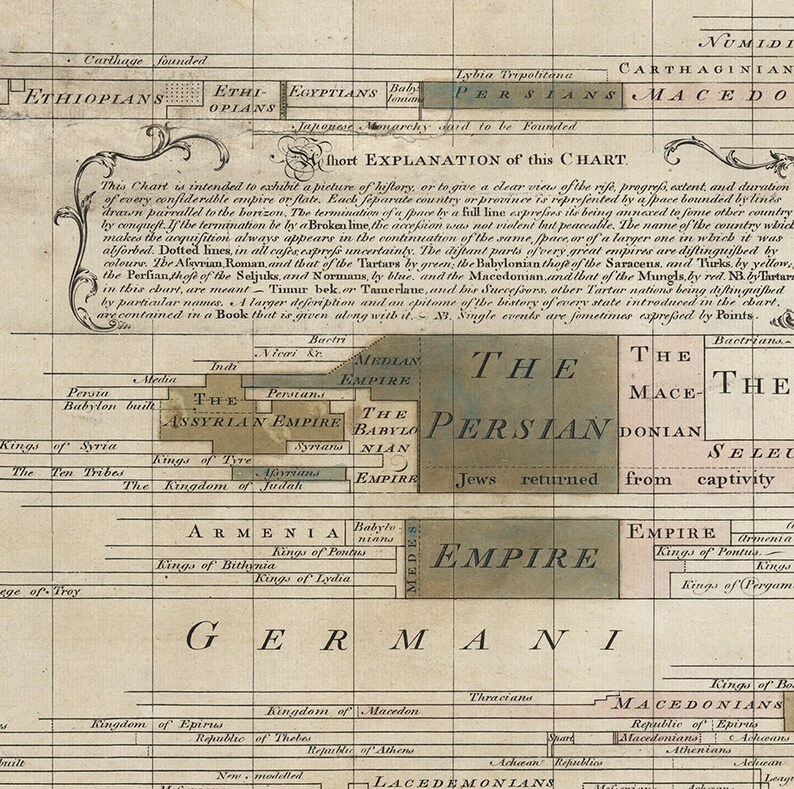 NUMIDI
Carthage founded
CARTHAGINIAN
Lybia Tripolitana
ETHIOPIANS
ETHI-
OPIANS
EGYPTIANS
Baby-
lonians
PERSIANS
MACEDO
Japonese Monarchy said to be Founded
A ſhort EXPLANATION of this CHART.
This Chart is intended to exhibit a picture of hiſtory, or to give a clear view of the riſe, progreſs, extent, and duration
of every conſiderable empire or ſtate. Each ſeparate country or province is repreſented by a ſpace bounded by lines
drawn parralled to the horizon. The termination of a ſpace by a full line expreſses its being annexed to ſome other country
by conqueſt. If the termination be by a Broken line, the acceſsion was not violent but peaceable. The name of the country which
makes the acquiſition always appears in the continuation of the same, ſpace, or of a larger one in which it was
abſorbed. Dotted lines, in all caſes, expreſs uncertainty. The diſtant parts of very great empires are diſtinguiſhed by
colours. The Aſsyrian, Roman, and that of the Tartars by green, the Babylonian, thoſe of the Saracens, and Turks, by yellow;
the Perſian, thoſe of the Seljuks, and Normans, by blue, and the Macedonian, and that of the Mungls, by red. NB. by Tartars
in this chart, are meant — Timur bek, or Tamerlane, and his Succeſsors, other Tartar nations being diſtinguiſhed
by particular names. A larger deſcription and an epitome of the hiſtory of every state introduced in the chart,
are contained in a Book that is given along with it. — NB. Single events are ſometimes expreſsed by Points.
Bactri
Nicæi &c.
Bactrians.
Indi
MEDIAN
EMPIRE
Media
Persia
Persians
Babylon built
THE
ASSYRIAN EMPIRE
THE
BABYLO
NIAN
EMPIRE
THE
PERSIAN
THE
MACE-
DONIAN
THE
Kings of Syria
Syrians
SELEU
Kings of Tyre
The Ten Tribes
Aſsyrians
The Kingdom of Judah
Jews returned from captivity
ARMENIA
Babylo-
nians
MEDES
EMPIRE
EMPIRE
Armenia
Kings of Pontus
Kings of Pontus.
Kings of Bithynia
Kings
Kings of Lydia
Kings of Pergam
ege of Troy
GERMANI
Kings of Bos
Thracians
MACEDONIANS
Kingdom of Macedon
Kingdom of Epirus
Republic of Epirus
Republic of Thebes
Spart
Macedonians
Achæans
Republic of Athens
Athenians
built
Achæan Republics
Achæan
New-modelled
Leag
LACEDEMONIANS
Achæan